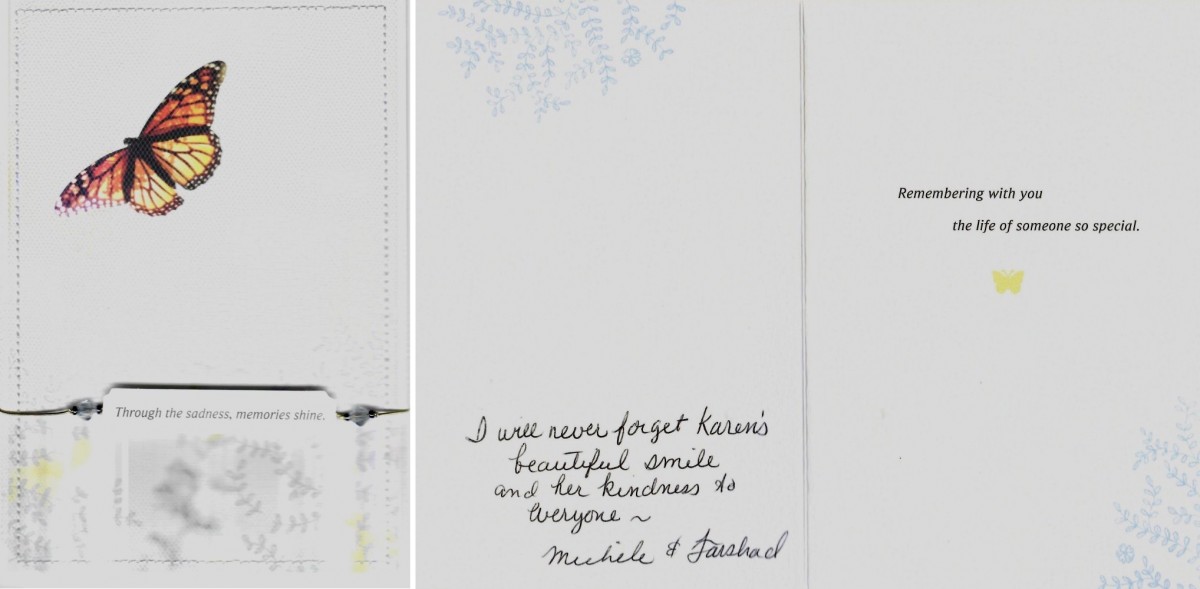 Through the sadness, memories shine.
I will never forget Karen's
beautiful smile
and her kindness to
everyone ~
Michele & Farshad
Remembering with you
the life of someone so special.